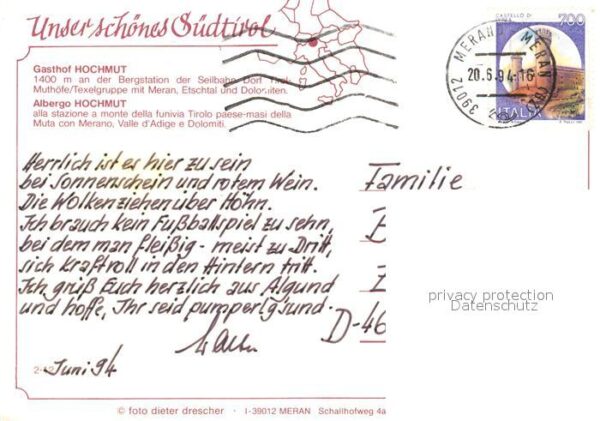 Unser schönes Südtirol
Gasthof HOCHMUT
1400 m an der Bergstation der Seilbahn Dorf Tirol
Muthöfe/Texelgruppe mit Meran, Etschtal und Dolomiten.
Albergo HOCHMUT
alla stazione a monte della funivia Tirolo paese-masi della
Muta con Merano, Valle d'Adige e Dolomiti.
CASTELLO DI
700
ITALIA
39012 MERAN
20.6.94-16
Herrlich ist es hier zu sein
bei Sonnenschein und rotem Wein.
Die Wolken ziehen über Höhn.
Ich brauch kein Fußballspiel zu sehn,
bei dem man fleißig - meist zu Dritt,
sich kraftvoll in den Hintern tritt.
Ich grüß Euch herzlich aus Algund
und hoffe, Ihr seid pumperlg'sund.
Juni 94
Familie
D-46
privacy protection
Datenschutz
© foto dieter drescher · I-39012 MERAN Schallhofweg 4a